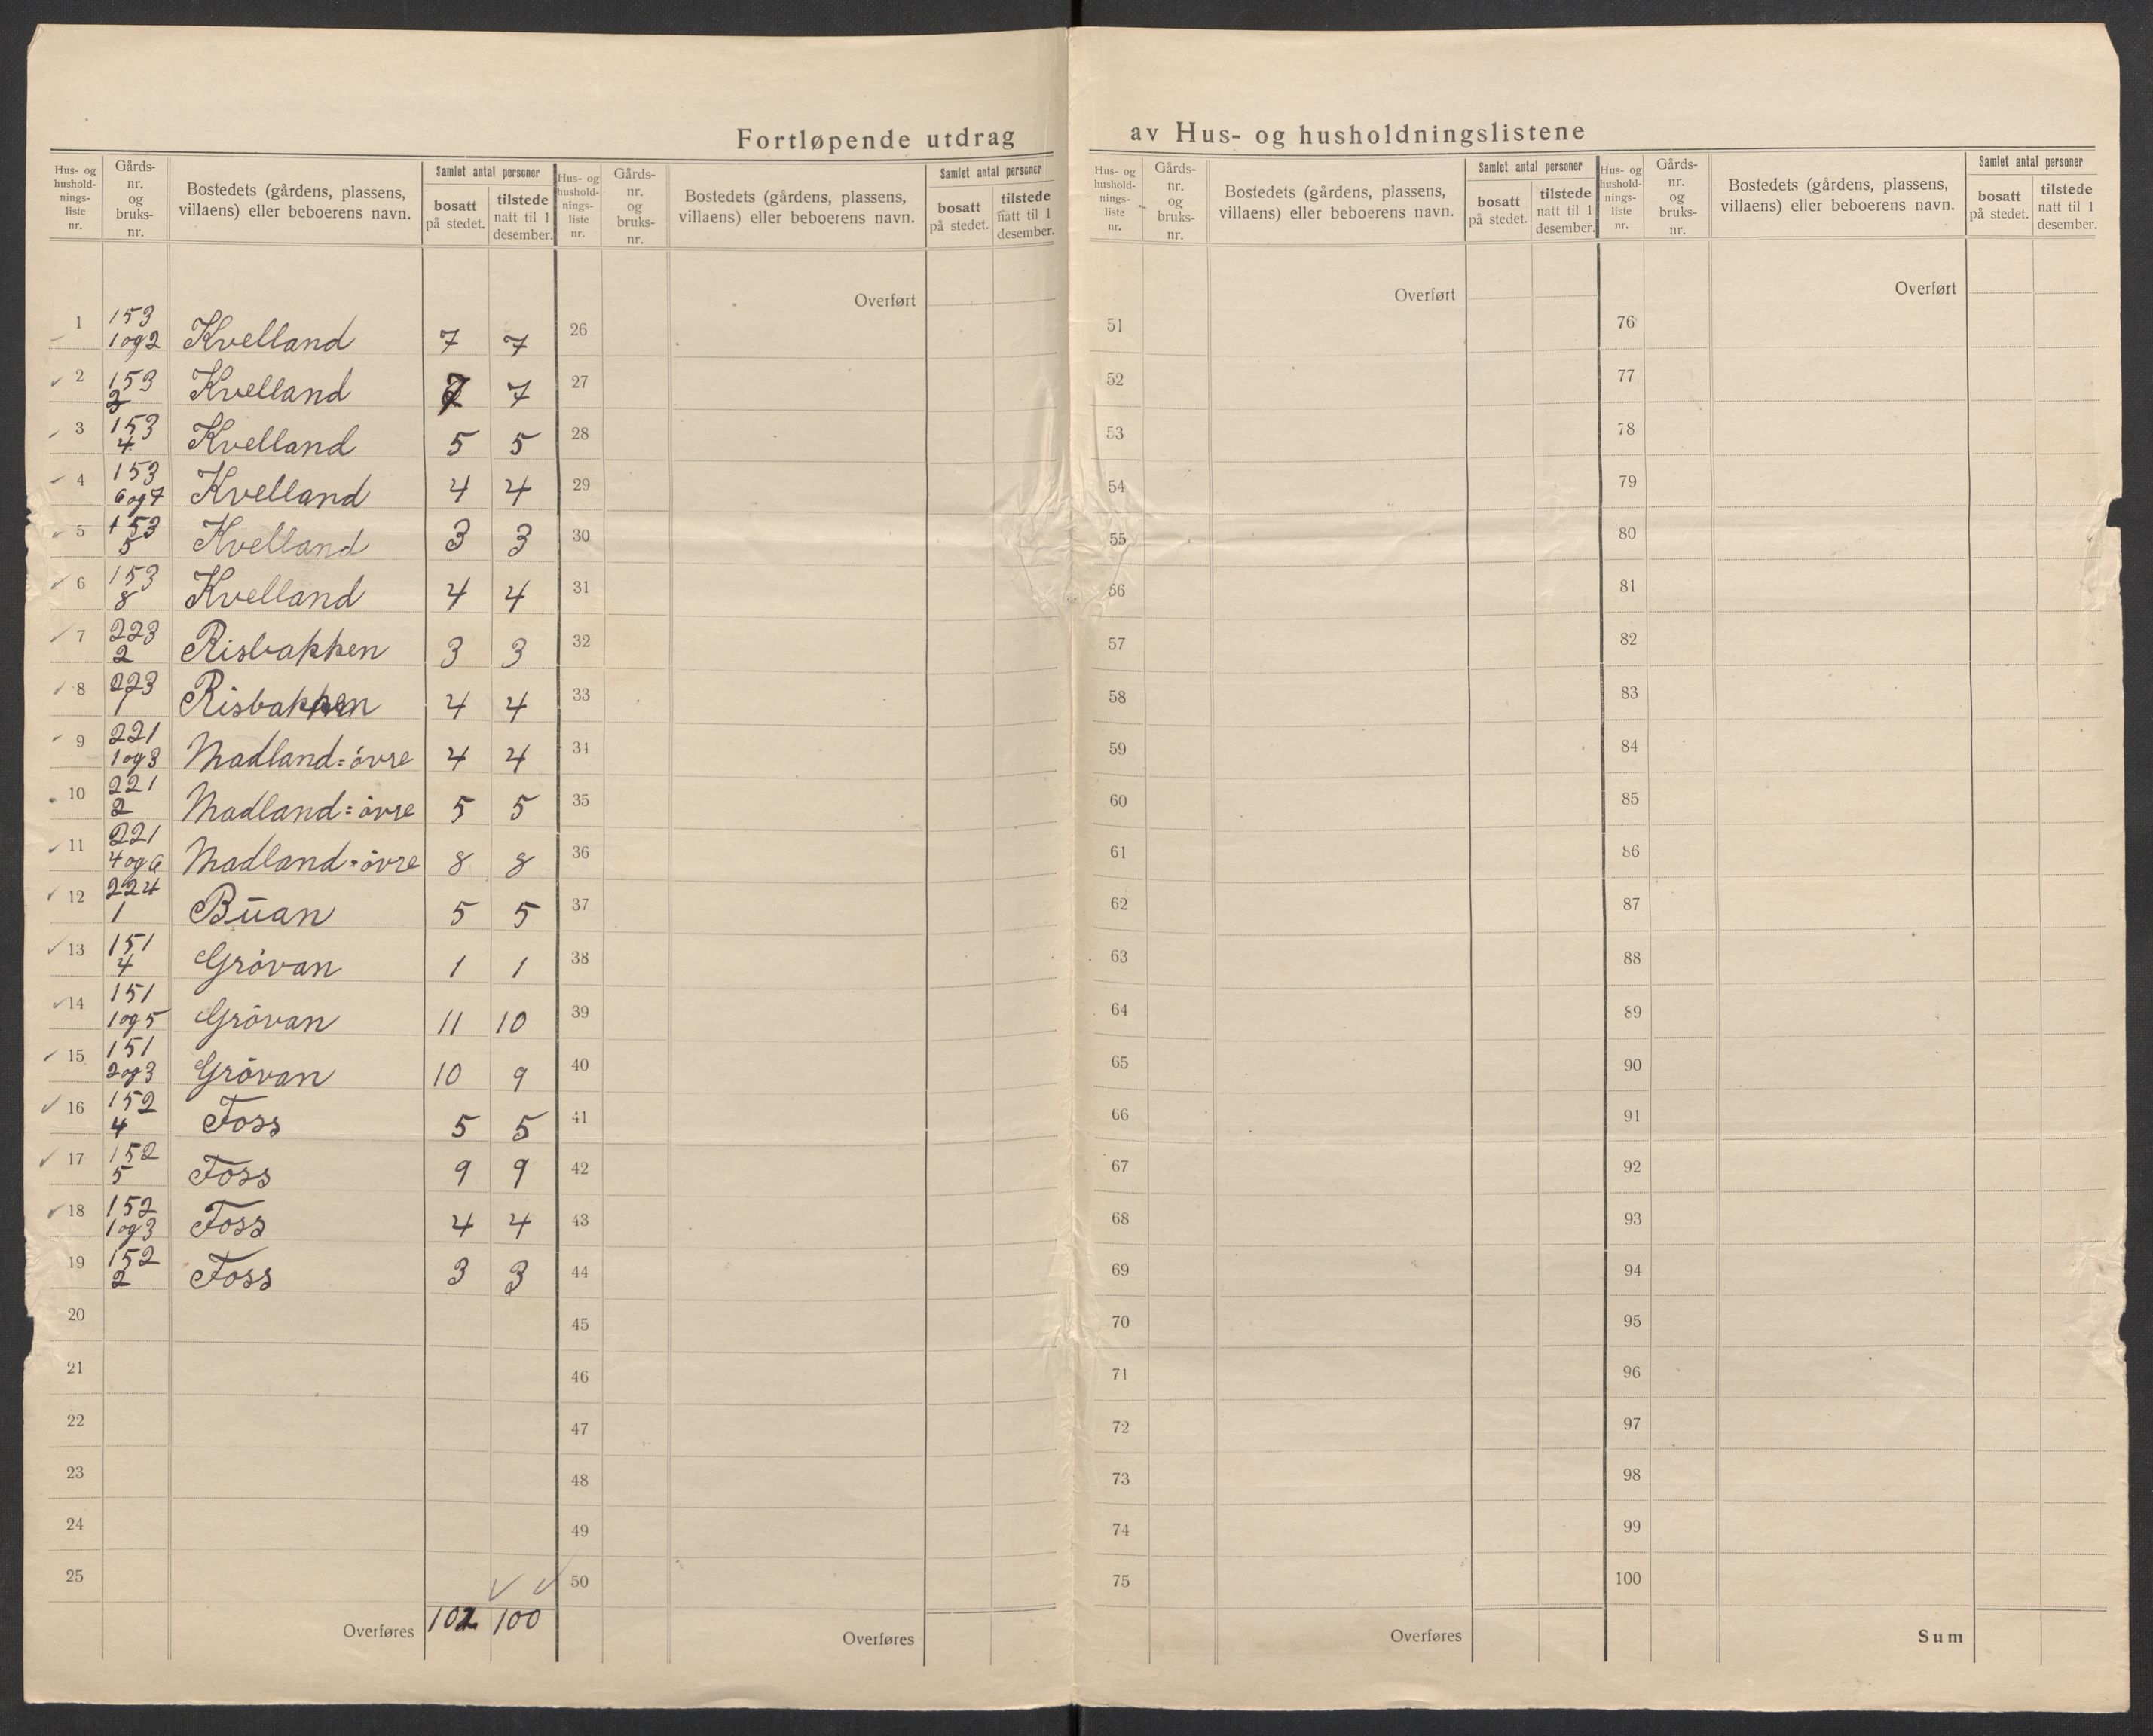 Fortløpende utdrag av Hus- og husholdningslistene
Hus- og hushold-nings-liste nr. Gårds-nr. og bruks-nr. Bostedets (gårdens, plassens, villaens) eller beboerens navn. Samlet antal personer bosatt på stedet. tilstede natt til 1 desember.
1 153 1 og 2 Kvelland 7 7
2 153 2 Kvelland 7 7
3 153 4 Kvelland 5 5
4 153 6 og 7 Kvelland 4 4
5 153 5 Kvelland 3 3
6 153 8 Kvelland 4 4
7 223 2 Risbakken 3 3
8 223 1 Risbakken 4 4
9 221 1 og 3 Madland=övre 4 4
10 221 2 Madland=övre 5 5
11 221 4 og 6 Madland=övre 8 8
12 224 1 Buan 5 5
13 151 4 Grövan 1 1
14 151 1 og 5 Grövan 11 10
15 151 2 og 3 Grövan 10 9
16 152 4 Foss 5 5
17 152 5 Foss 9 9
18 152 1 og 3 Foss 4 4
19 152 2 Foss 3 3
20
21
22
23
24
25
Overføres 102 100
Hus- og hushold-nings-liste nr. Gårds-nr. og bruks-nr. Bostedets (gårdens, plassens, villaens) eller beboerens navn. Samlet antal personer bosatt på stedet. tilstede natt til 1 desember.
Overført
26
27
28
29
30
31
32
33
34
35
36
37
38
39
40
41
42
43
44
45
46
47
48
49
50
Overføres
Hus- og hushold-nings-liste nr. Gårds-nr. og bruks-nr. Bostedets (gårdens, plassens, villaens) eller beboerens navn. Samlet antal personer bosatt på stedet. tilstede natt til 1 desember.
Overført
51
52
53
54
55
56
57
58
59
60
61
62
63
64
65
66
67
68
69
70
71
72
73
74
75
Overføres
Hus- og hushold-nings-liste nr. Gårds-nr. og bruks-nr. Bostedets (gårdens, plassens, villaens) eller beboerens navn. Samlet antal personer bosatt på stedet. tilstede natt til 1 desember.
Overført
76
77
78
79
80
81
82
83
84
85
86
87
88
89
90
91
92
93
94
95
96
97
98
99
100
Sum